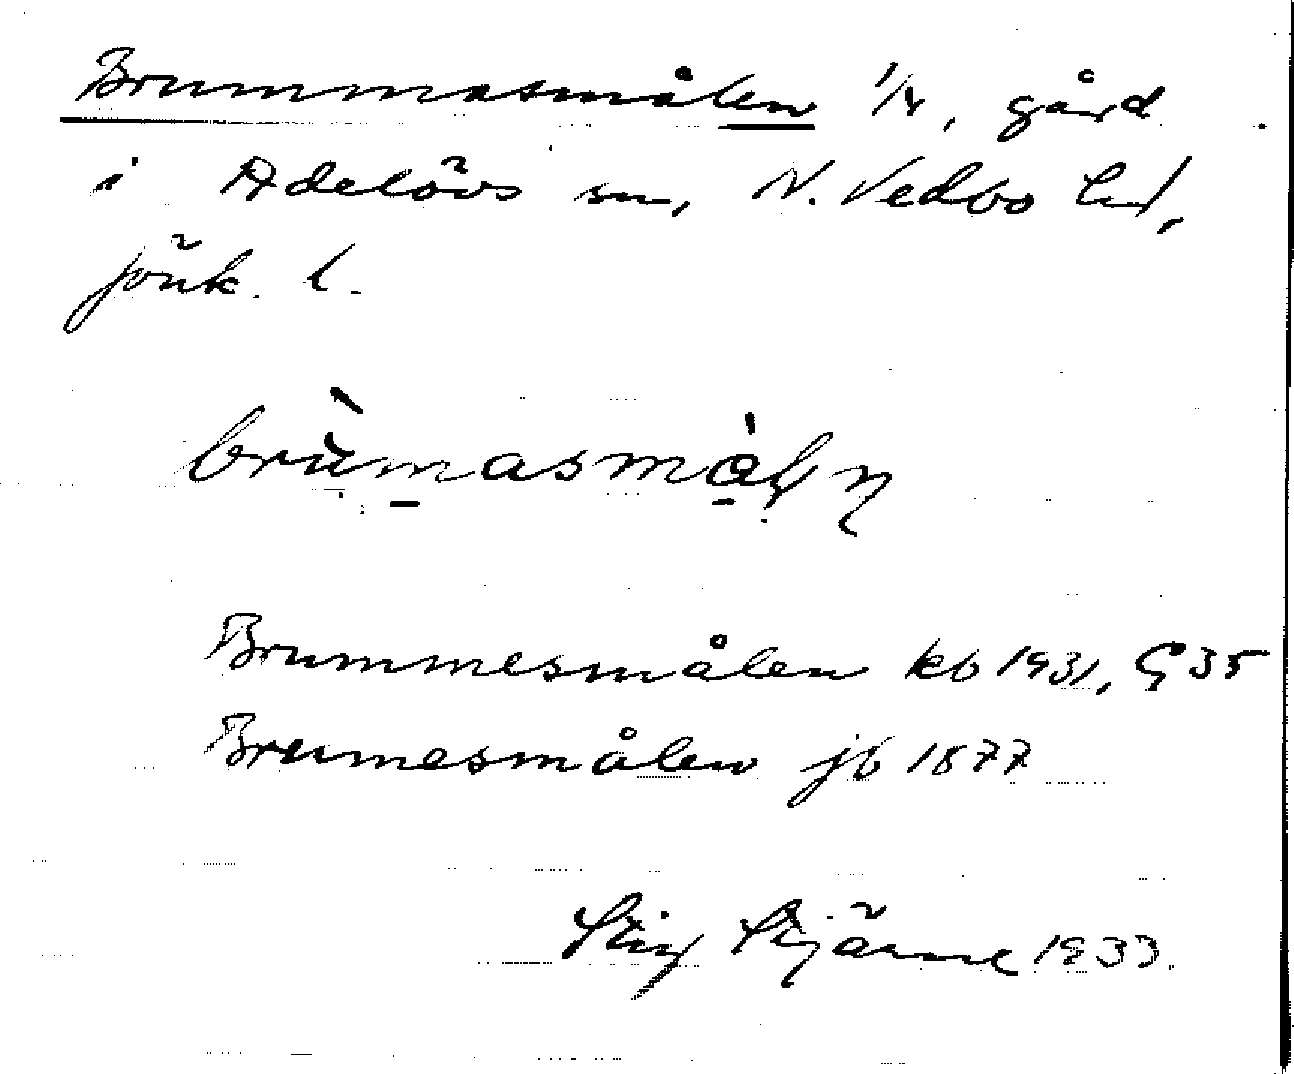 Brummasmålen 1/4, gård
i Adelövs sn, N. Vedbo hd,
Jönk. l.
brùmasmàl̨n̨
Brummesmålen kb 1931, G 35
Brumesmålen jb 1877
Stig Stjärne 1933